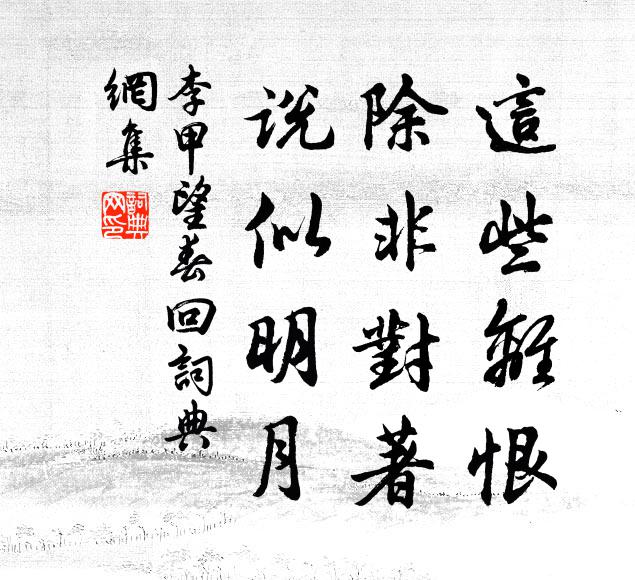 這些離恨
除非對著
説似明月
李甲望春回詞典
網集
詞典
网印